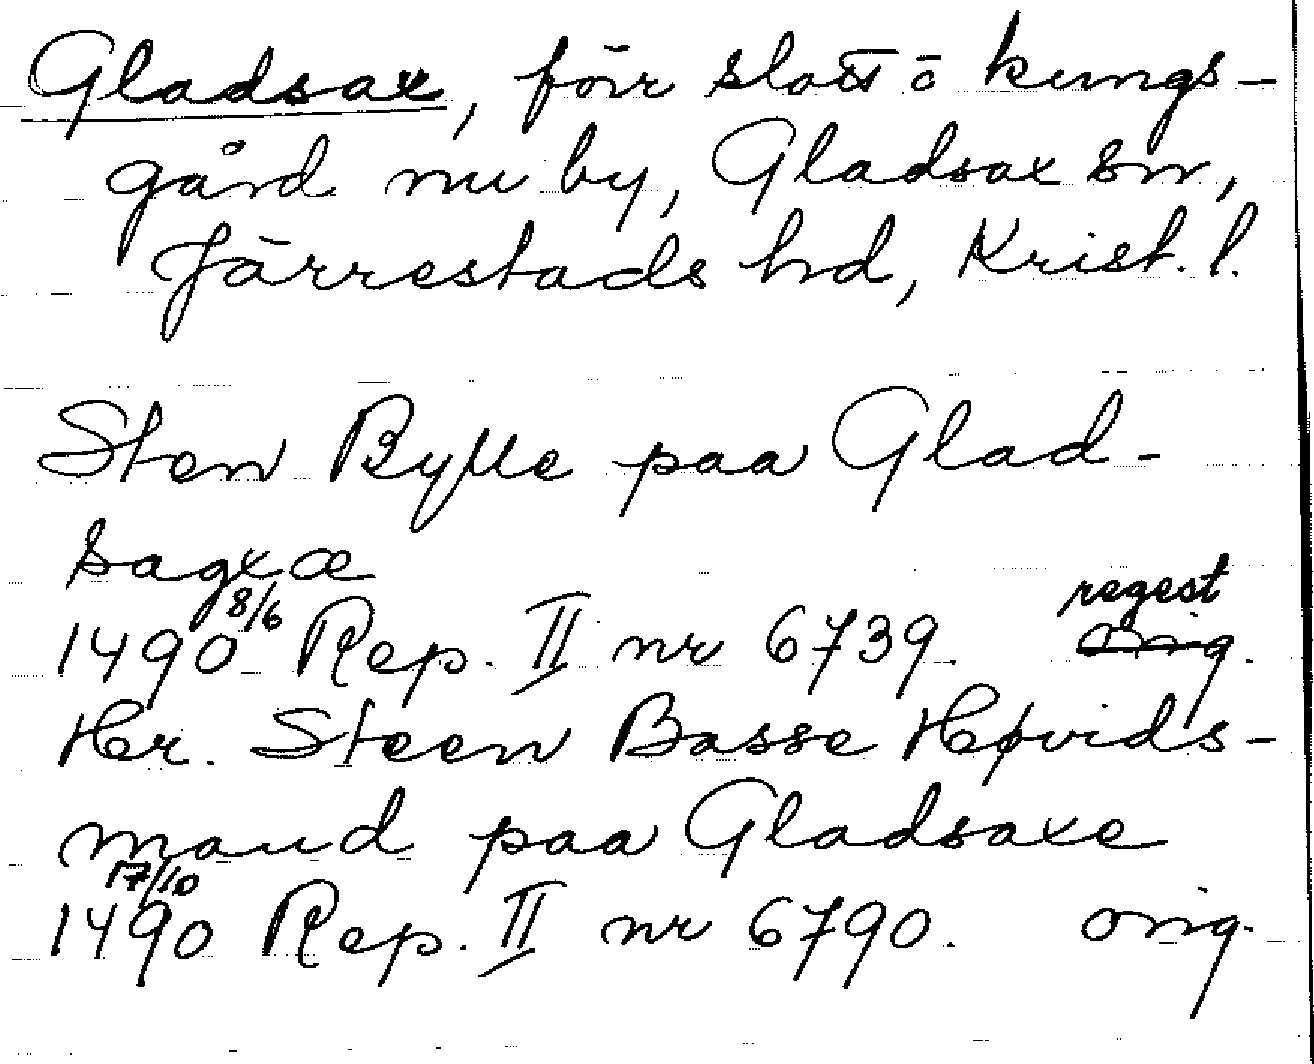 Gladsax, förr slott o kungs-
gård nu by, Gladsax sn,
Järrestads hd, Krist. l.
Sten Bylle paa Glad-
sagxæ
1490 8/6 Rep. II nr 6739. regest orig.
Her. Steen Basse Høvids-
mand paa Gladsaxe
1490 17/10 Rep. II nr 6790. orig.